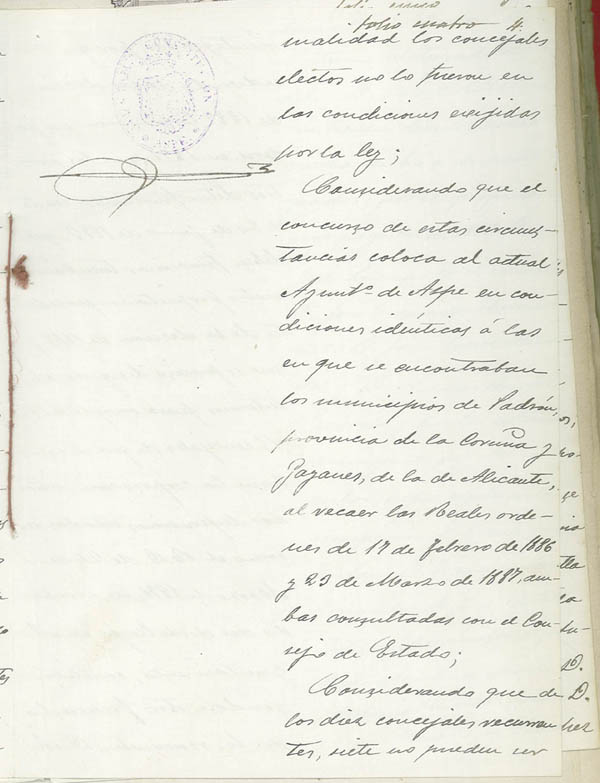 folio cuatro 4.
malidad los concejales
electos no lo fueron en
las condiciones exijidas
por la ley;
Considerando que el
concurso de estas circuns-
tancias coloca al actual
Ayuntº. de Aspe en con-
diciones idénticas á las
en que se encontraban
los municipios de Padrón,
provincia de la Coruña y
Fazanes, de la de Alicante,
al recaer las Reales orde-
nes de 17 de Febrero de 1886
y 23 de Marzo de 1887, am-
bas consultadas con el Con-
sejo de Estado;
Considerando que de
los diez concejales recurren-
tes, siete no pueden ser